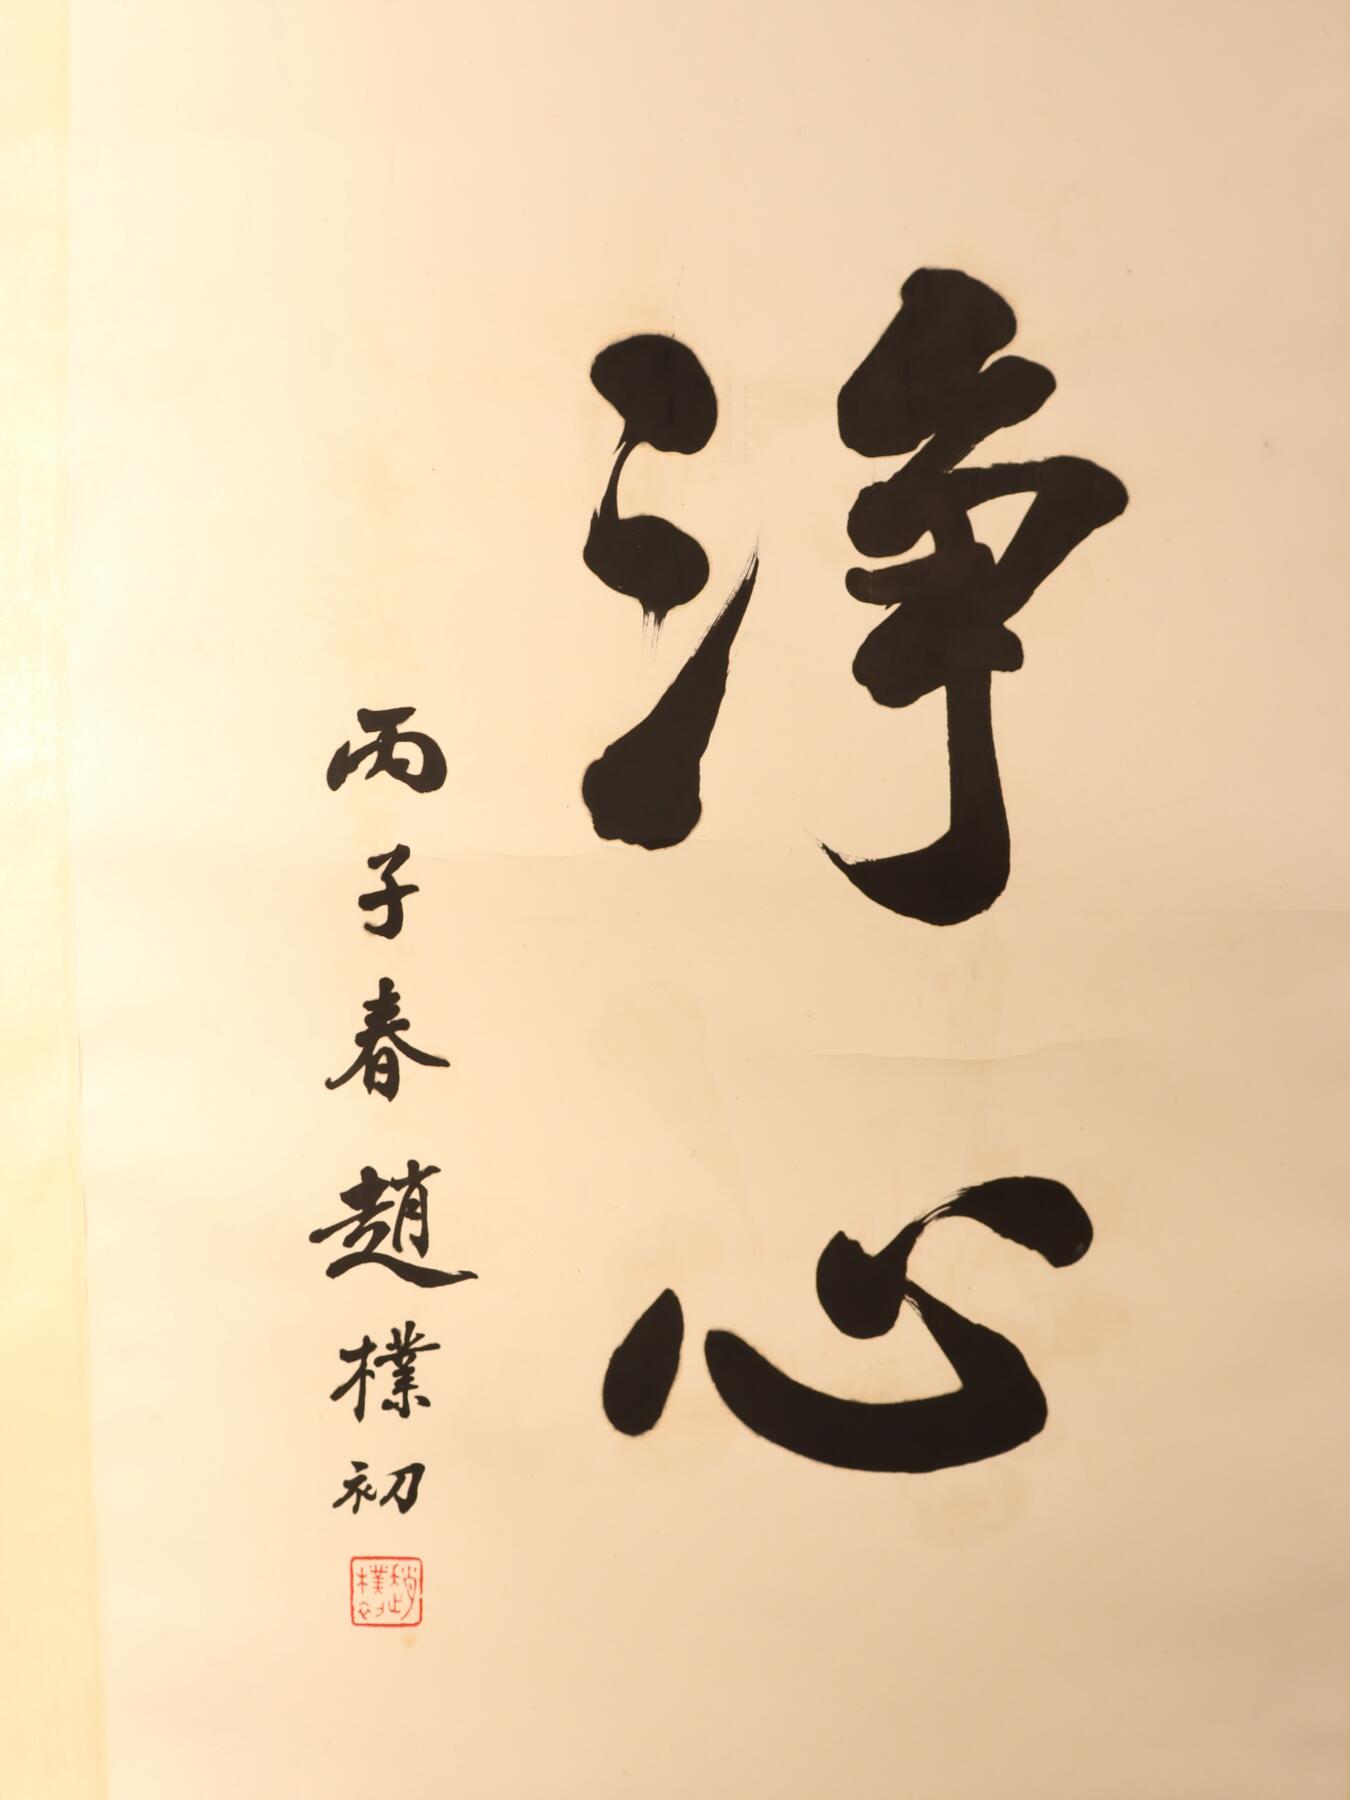 淨心
丙子春趙樸初
趙樸初